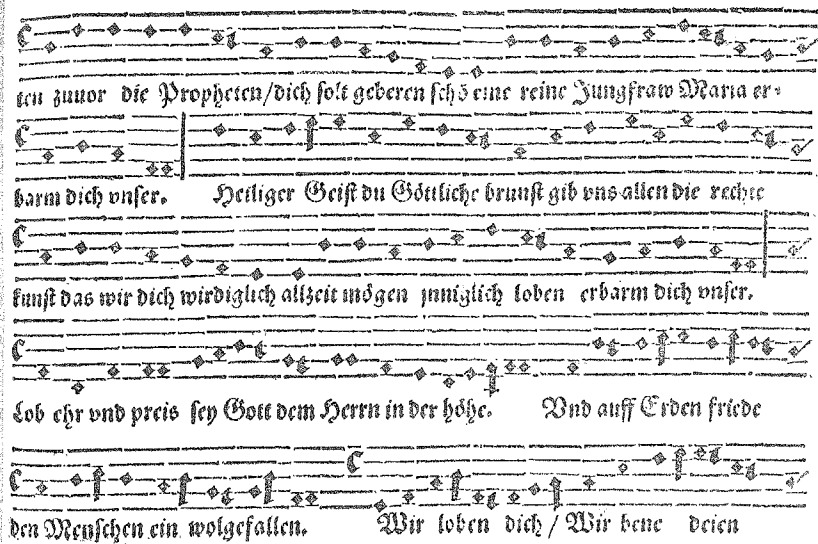 ten zuuor die Propheten/dich solt geberen schö eine reine Jungfraw Maria er-
barm dich vnser. Heiliger Geist du Göttliche brunst gib vns allen die rechte
kunst das wir dich wirdiglich allzeit mögen jnniglich loben erbarm dich vnser.
Lob ehr vnd preis sey Gott dem Herrn in der höhe. Vnd auff Erden friede
den Menschen ein wolgefallen. Wir loben dich / Wir bene deien